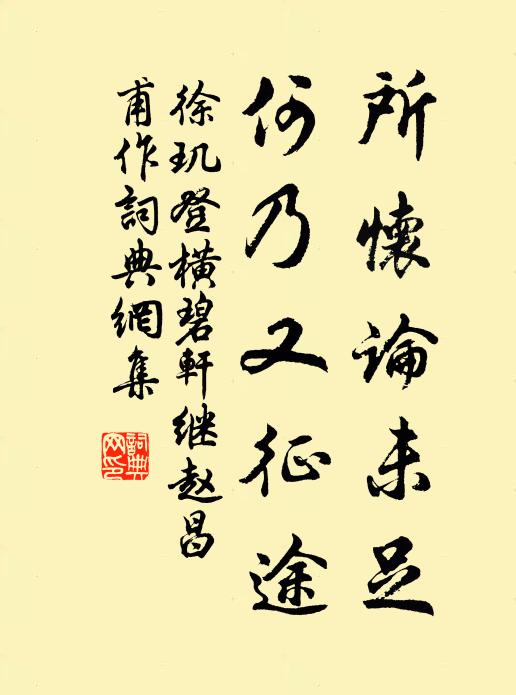 所懷論未足
何乃又征途
徐玑登橫碧軒继赵昌
甫作詞典網集
詞典
网印